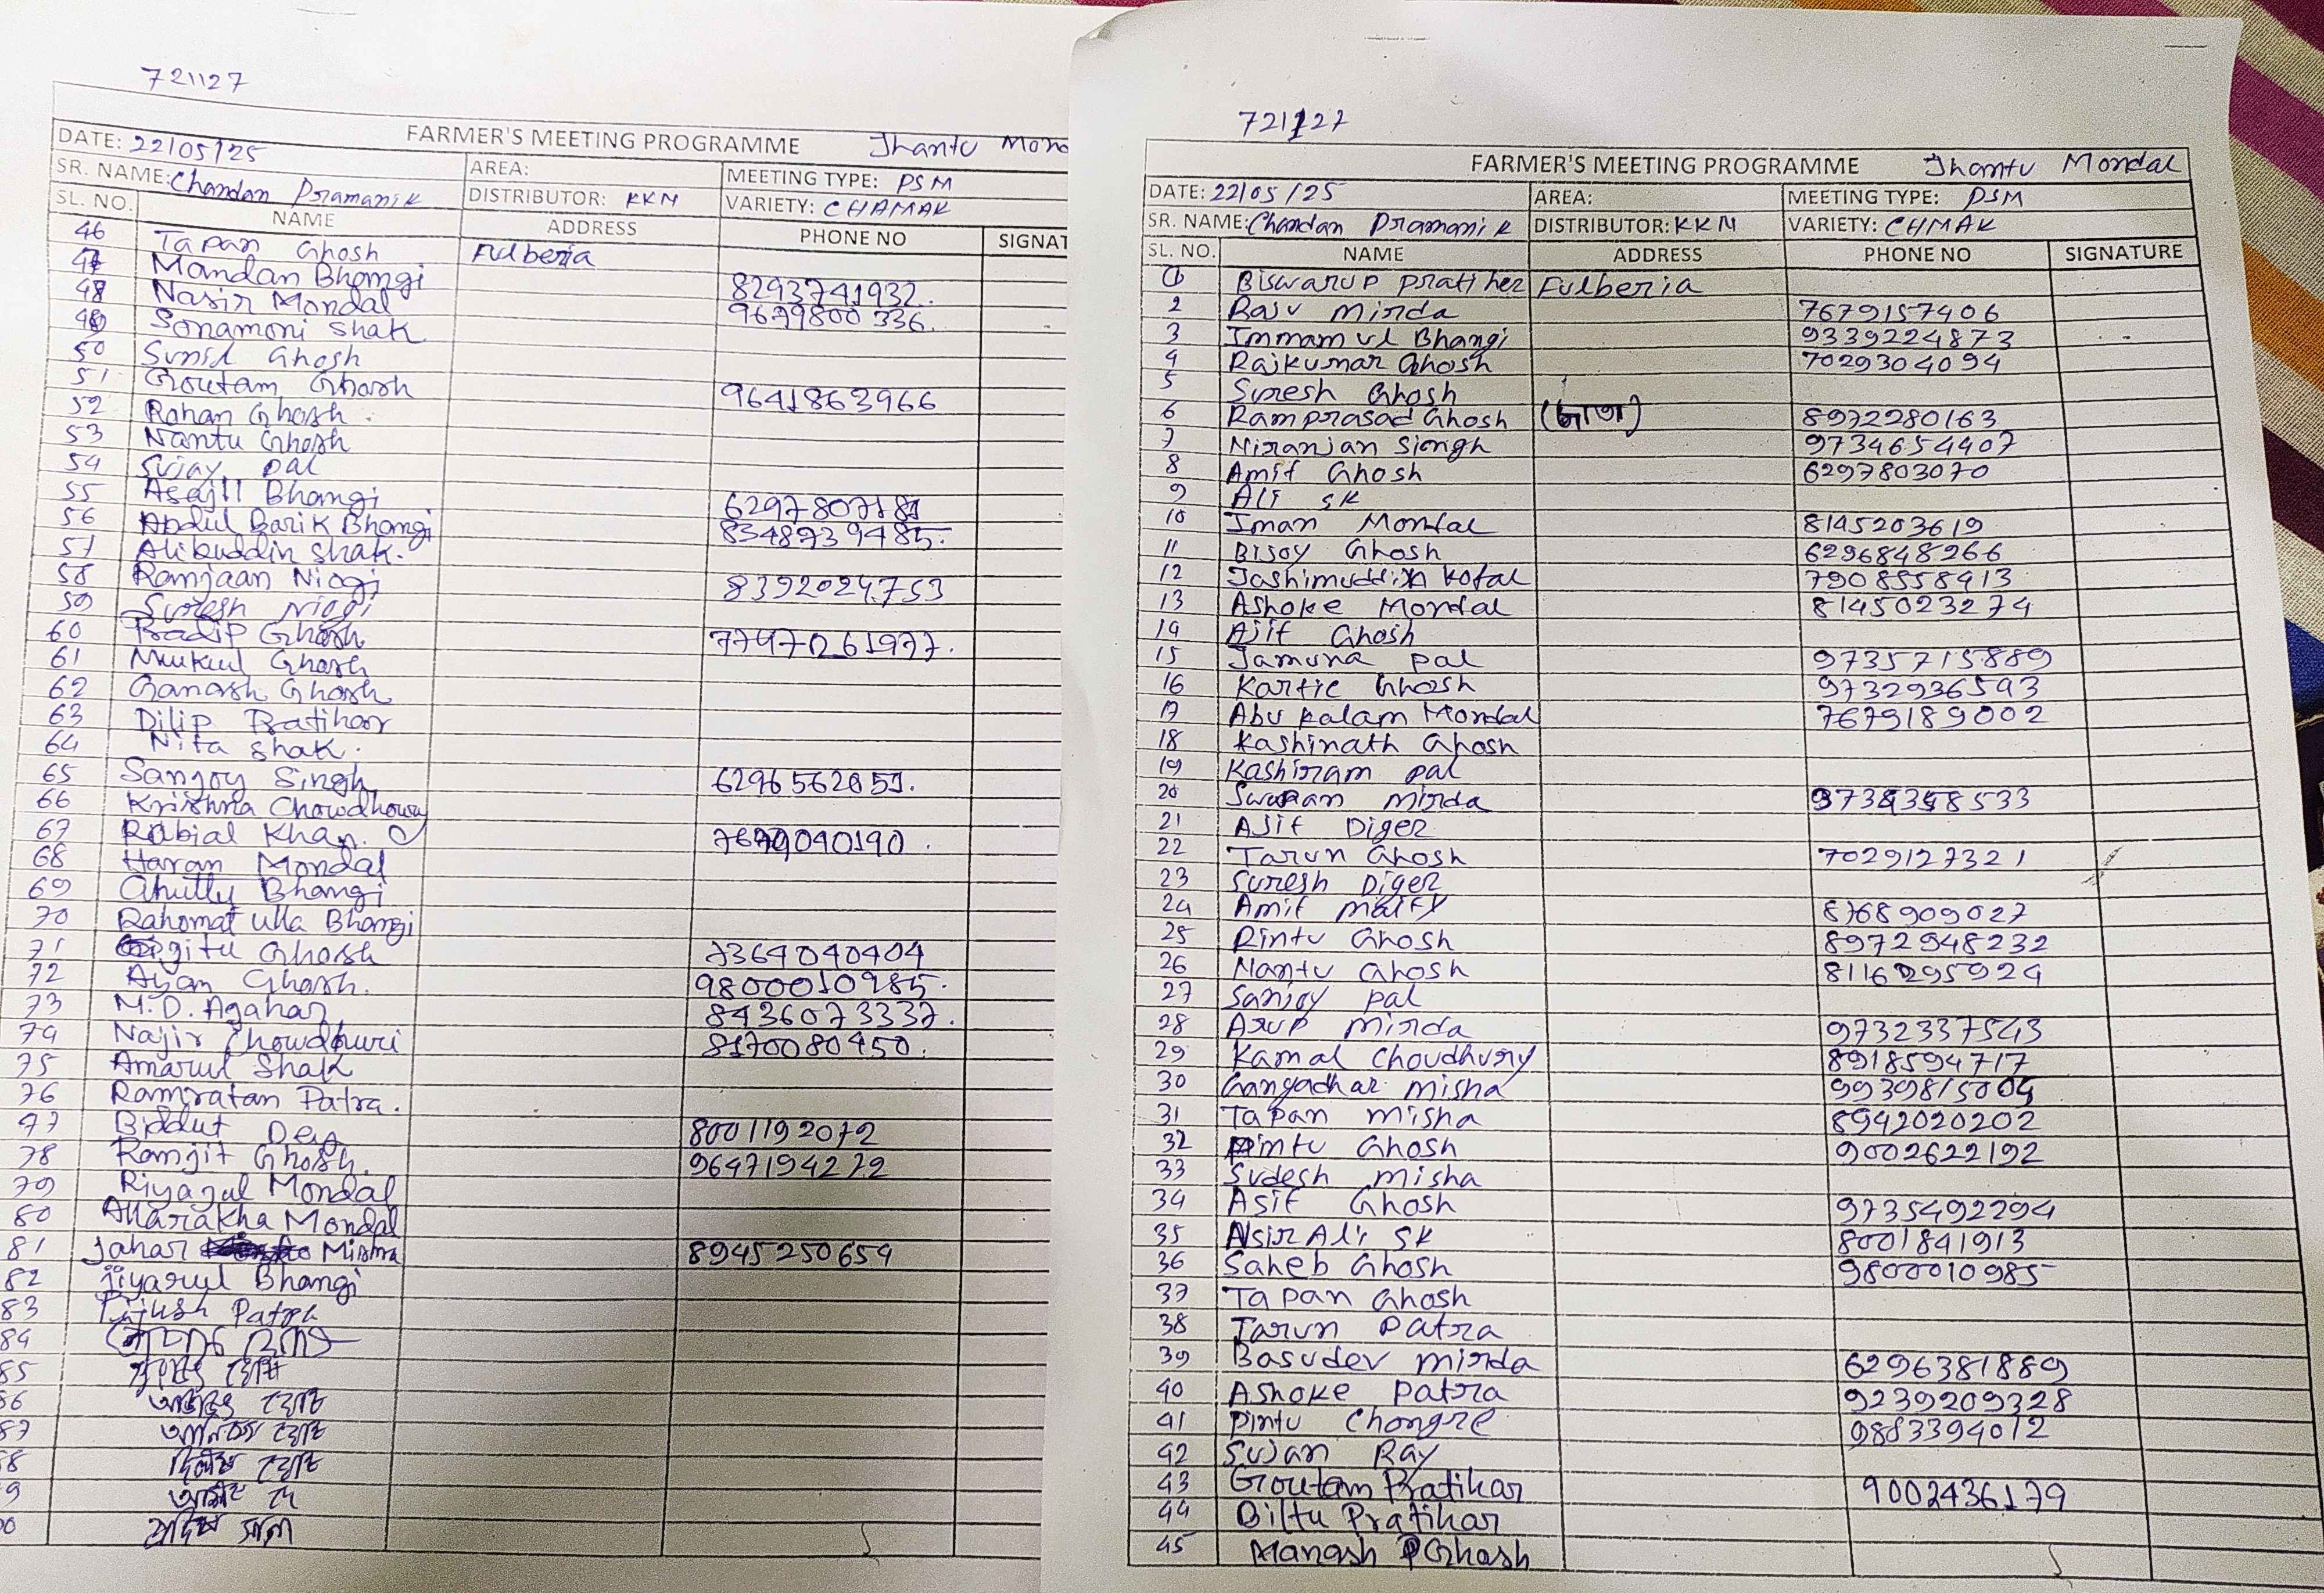 721127
FARMER'S MEETING PROGRAMME Jhantu Mond
DATE: 22/05/25 AREA: MEETING TYPE: PSM
SR. NAME: Chandan Pramanik DISTRIBUTOR: KKM VARIETY: CHAMAK
SL. NO. NAME ADDRESS PHONE NO SIGNAT
46 Tapan Ghosh Fulberia
47 Mandan Bhangi 8293741932.
48 Nasir Mondal 9679800336.
49 Sonamoni Shak
50 Sunil Ghosh
51 Goutam Ghosh 9641863966
52 Rohan Ghosh.
53 Nantu Ghosh
54 Sujay pal
55 Bhangi
56 Abdul Barik Bhangi
57 Alibuddin Shak.
58 Ramjaan Niogi 8392024753
59 Suresh Niogi
60 Pradip Ghosh
61 Mukul Ghosh
62 Ganash Ghosh
63 Dilip Pratihar
64 Nita Shak.
65 Sanjoy Singh
66 Krishna Chowdhowy
67 Rabial Khan.
68 Haran Mondal
69 Bhangi
70 Rahomat ulla Bhangi
71 Ghosh 7364040404
72 Ayan Ghosh. 9800010985.
73 M.D. Agahar 8436073337.
74 Najir Chowdhuri 8170080450.
75 Amarul Shak
76 Ramratan Patra.
77 Biddut Dey 8001192072
78 Ramjit Ghosh. 9647194272
79 Riyazul Mondal
80 Allarakha Mondal
81 Jahar 8945250654
82 Jiyarul Bhangi
83 Pijush Patra
84
85 ঘোষ
86 ঘোষ
87 ঘোষ
88 দিলীপ ঘোষ
9 দে
721127
FARMER'S MEETING PROGRAMME Jhantu Mondal
DATE: 22/05/25 AREA: MEETING TYPE: PSM
SR. NAME: Chandan Pramanik DISTRIBUTOR: KKM VARIETY: CHMAK
SL. NO. NAME ADDRESS PHONE NO SIGNATURE
1 Biswarup pratiher Fulberia
2 Raju Mirda 7679157406
3 Immamul Bhangi 9339224873
4 Rajkumar Ghosh 7029304094
5 Suresh Ghosh
6 Ramprasad Ghosh 8972280163
7 Niranjan Singh 9734654407
8 Amit Ghosh 6297803070
9 Ali SK
10 Iman Mondal 8145203619
11 Bijoy Ghosh 6296848266
12 Jashimuddin Kotal 7908558913
13 Ashoke Mondal 8145023274
14 Ajit Ghosh
15 Jamuna pal 9735715889
16 Kartic Ghosh 9732936593
17 Abu Kalam Mondal 7679189002
18 Kashinath Ghosh
19 Kashiram pal
20 Swapan mirda
21 Ajit Diger
22 Tarun Ghosh 7029127321
23 Suresh Diger
24 Amit maity 8768909027
25 Pintu Ghosh 8972948232
26 Nantu Ghosh 8116295924
27 Sanjoy pal
28 Arup Mirda 9732337543
29 Kamal Choudhury 8918594717
30 Gangadhar misha 9939815004
31 Tapan misha 8942020202
32 Pintu Ghosh 9002622192
33 Sudesh misha
34 Asit Ghosh 9735492294
35 Nsir Ali SK 8001841913
36 Saheb Ghosh 9800010985
37 Tapan Ghosh
38 Tarun Patra
39 Basudev mirda 6296381889
40 Ashoke patra 9239209328
41 Pintu Chongre 9883394012
42 Sujan Ray
43 Groutam Pratihar 9002436179
44 Biltu Pratihar
45 Manash Ghosh